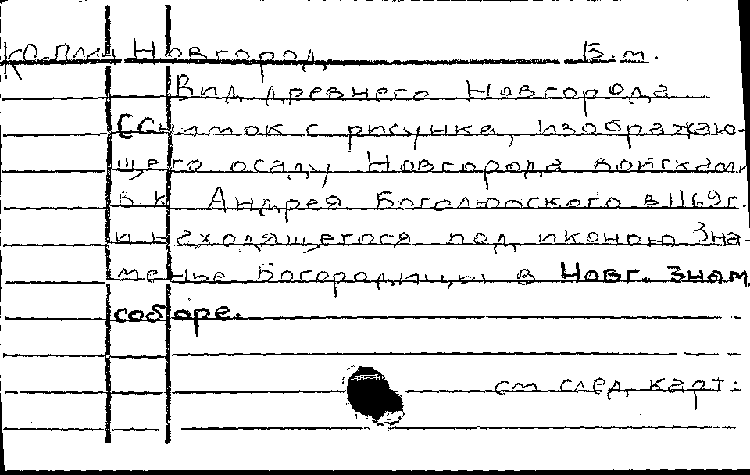 Новгород Б.м.
Вид древнего Новгорода
Снимок с рисунка, изображаю-
щего осаду Новгорода войсками
в.к Андрея Боголюбского в 1169г.
и находящегося под иконою Зна-
менье Богородицы в Новг. Знам
соборе.
см след, карт: